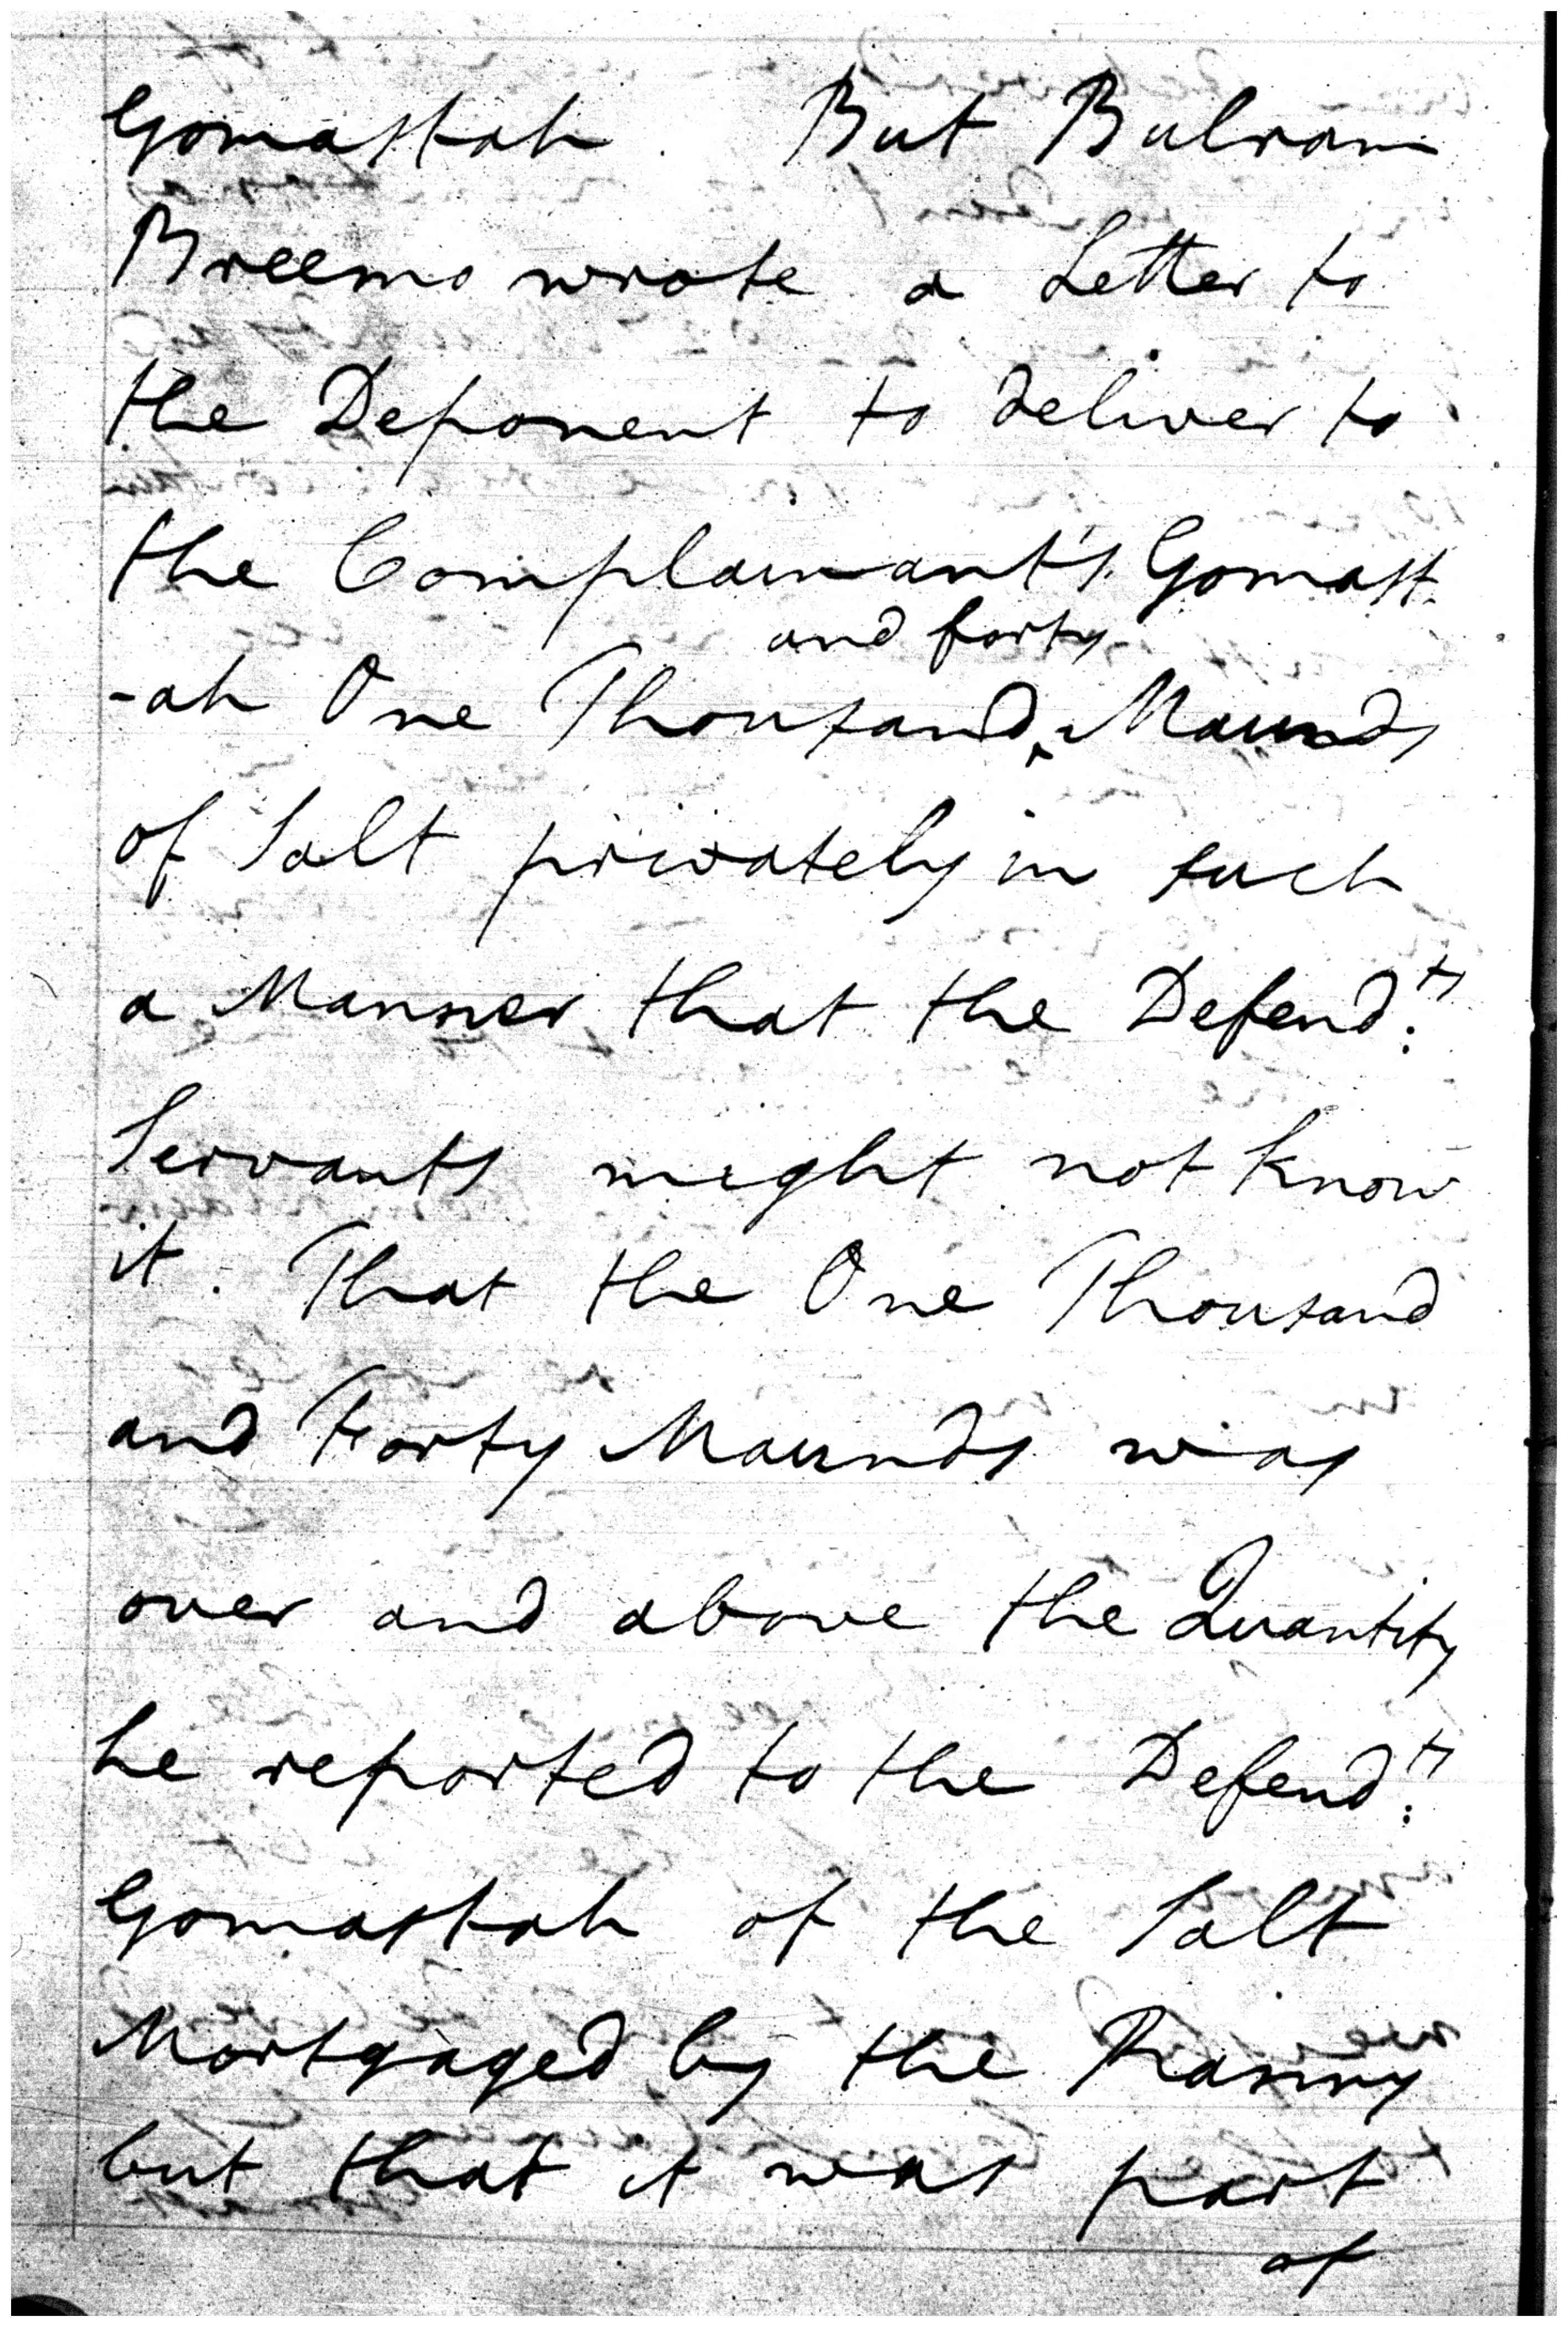 Gomastah. But Bulram
Breemo wrote a Letter to
the Deponent to deliver to
the Complainant's Gomast
and forty
-ah One Thousand ‸ Maunds
of Salt privately in such
a Manner that the Defend.ts
Servants might not know
it. That the One Thousand
and Forty Maunds was
over and above the Quantity
he reported to the Defend.ts
Gomastah of the Salt
Mortgaged by the Ranny
but that it was part
of